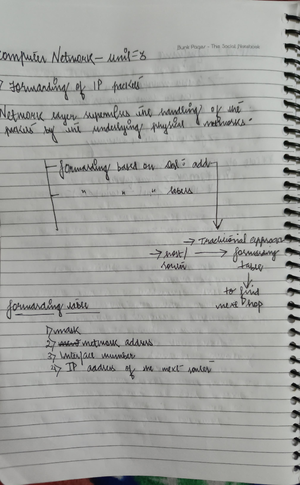 Computer Network - unit-3
Forwarding of IP packets
Network layer supervises the handling of the
packets by the underlying physical networks.
forwarding based on dest: addr
" " " labels
→ Traditional approach
→ host/router → forwarding table
to find
next hop
forwarding table
1) mask
2) network address
3) Interface number
4) IP address of the next router